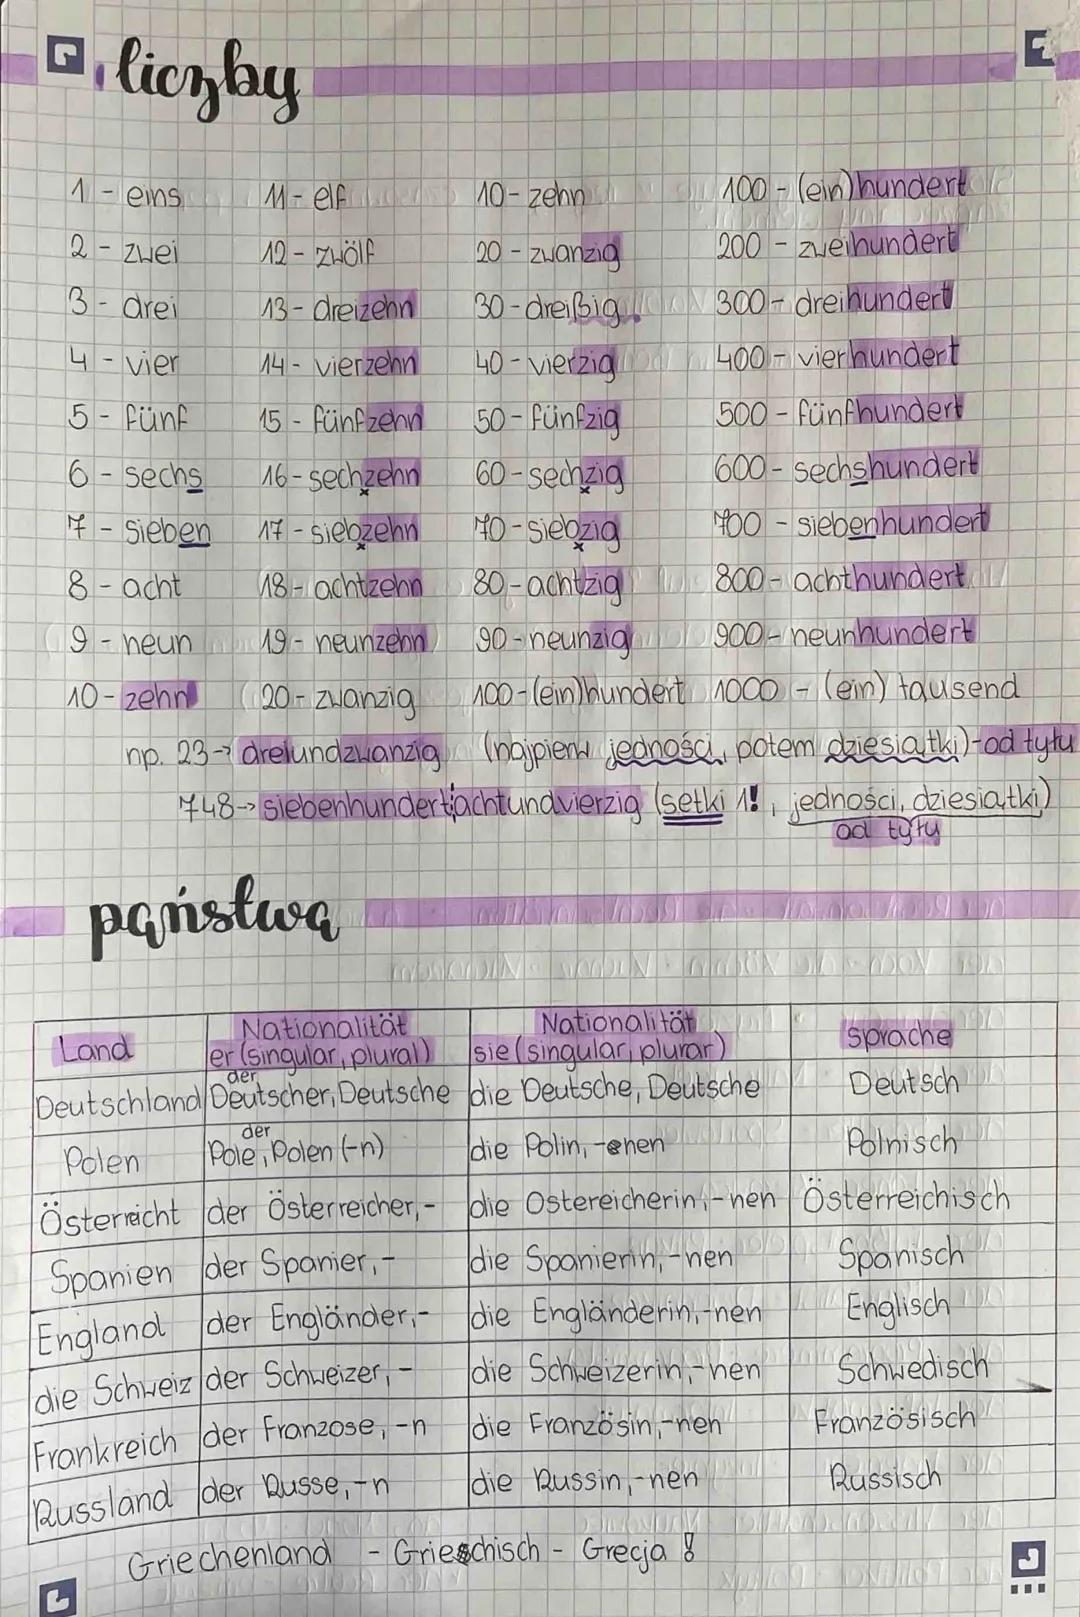 liczby
1 - eins 11 - elf 10 - zehn 100 - (ein)hundert
2 - zwei 12 - zwölf 20 - zwanzig 200 - zweihundert
3 - drei 13 - dreizehn 30 - dreißig 300 - dreihundert
4 - vier 14 - vierzehn 40 - vierzig 400 - vierhundert
5 - fünf 15 - fünfzehn 50 - fünfzig 500 - fünfhundert
6 - sechs 16 - sechzehn 60 - sechzig 600 - sechshundert
7 - sieben 17 - siebzehn 70 - siebzig 700 - siebenhundert
8 - acht 18 - achtzehn 80 - achtzig 800 - achthundert
9 - neun 19 - neunzehn 90 - neunzig 900 - neunhundert
10 - zehn 20 - zwanzig 100 - (ein)hundert 1000 - (ein) tausend
np. 23 → dreiundzwanzig (najpierw jedności, potem dziesiątki) - od tyłu
748 → siebenhundert¦achtundvierzig (setki 1!, jedności, dziesiątki)
od tyłu
państwa
Land Nationalität er (singular, plural) Nationalität sie (singular, plurar) sprache
Deutschland der Deutscher, Deutsche die Deutsche, Deutsche Deutsch
Polen der Pole, Polen (-n) die Polin, -enen Polnisch
Österreicht der Österreicher, - die Ostereicherin, -nen Österreichisch
Spanien der Spanier, - die Spanierin, -nen Spanisch
England der Engländer, - die Engländerin, -nen Englisch
die Schweiz der Schweizer, - die Schweizerin, -nen Schwedisch
Frankreich der Franzose, -n die Französin, -nen Französisch
Russland der Russe, -n die Russin, -nen Russisch
Griechenland - Grieschisch - Grecja !